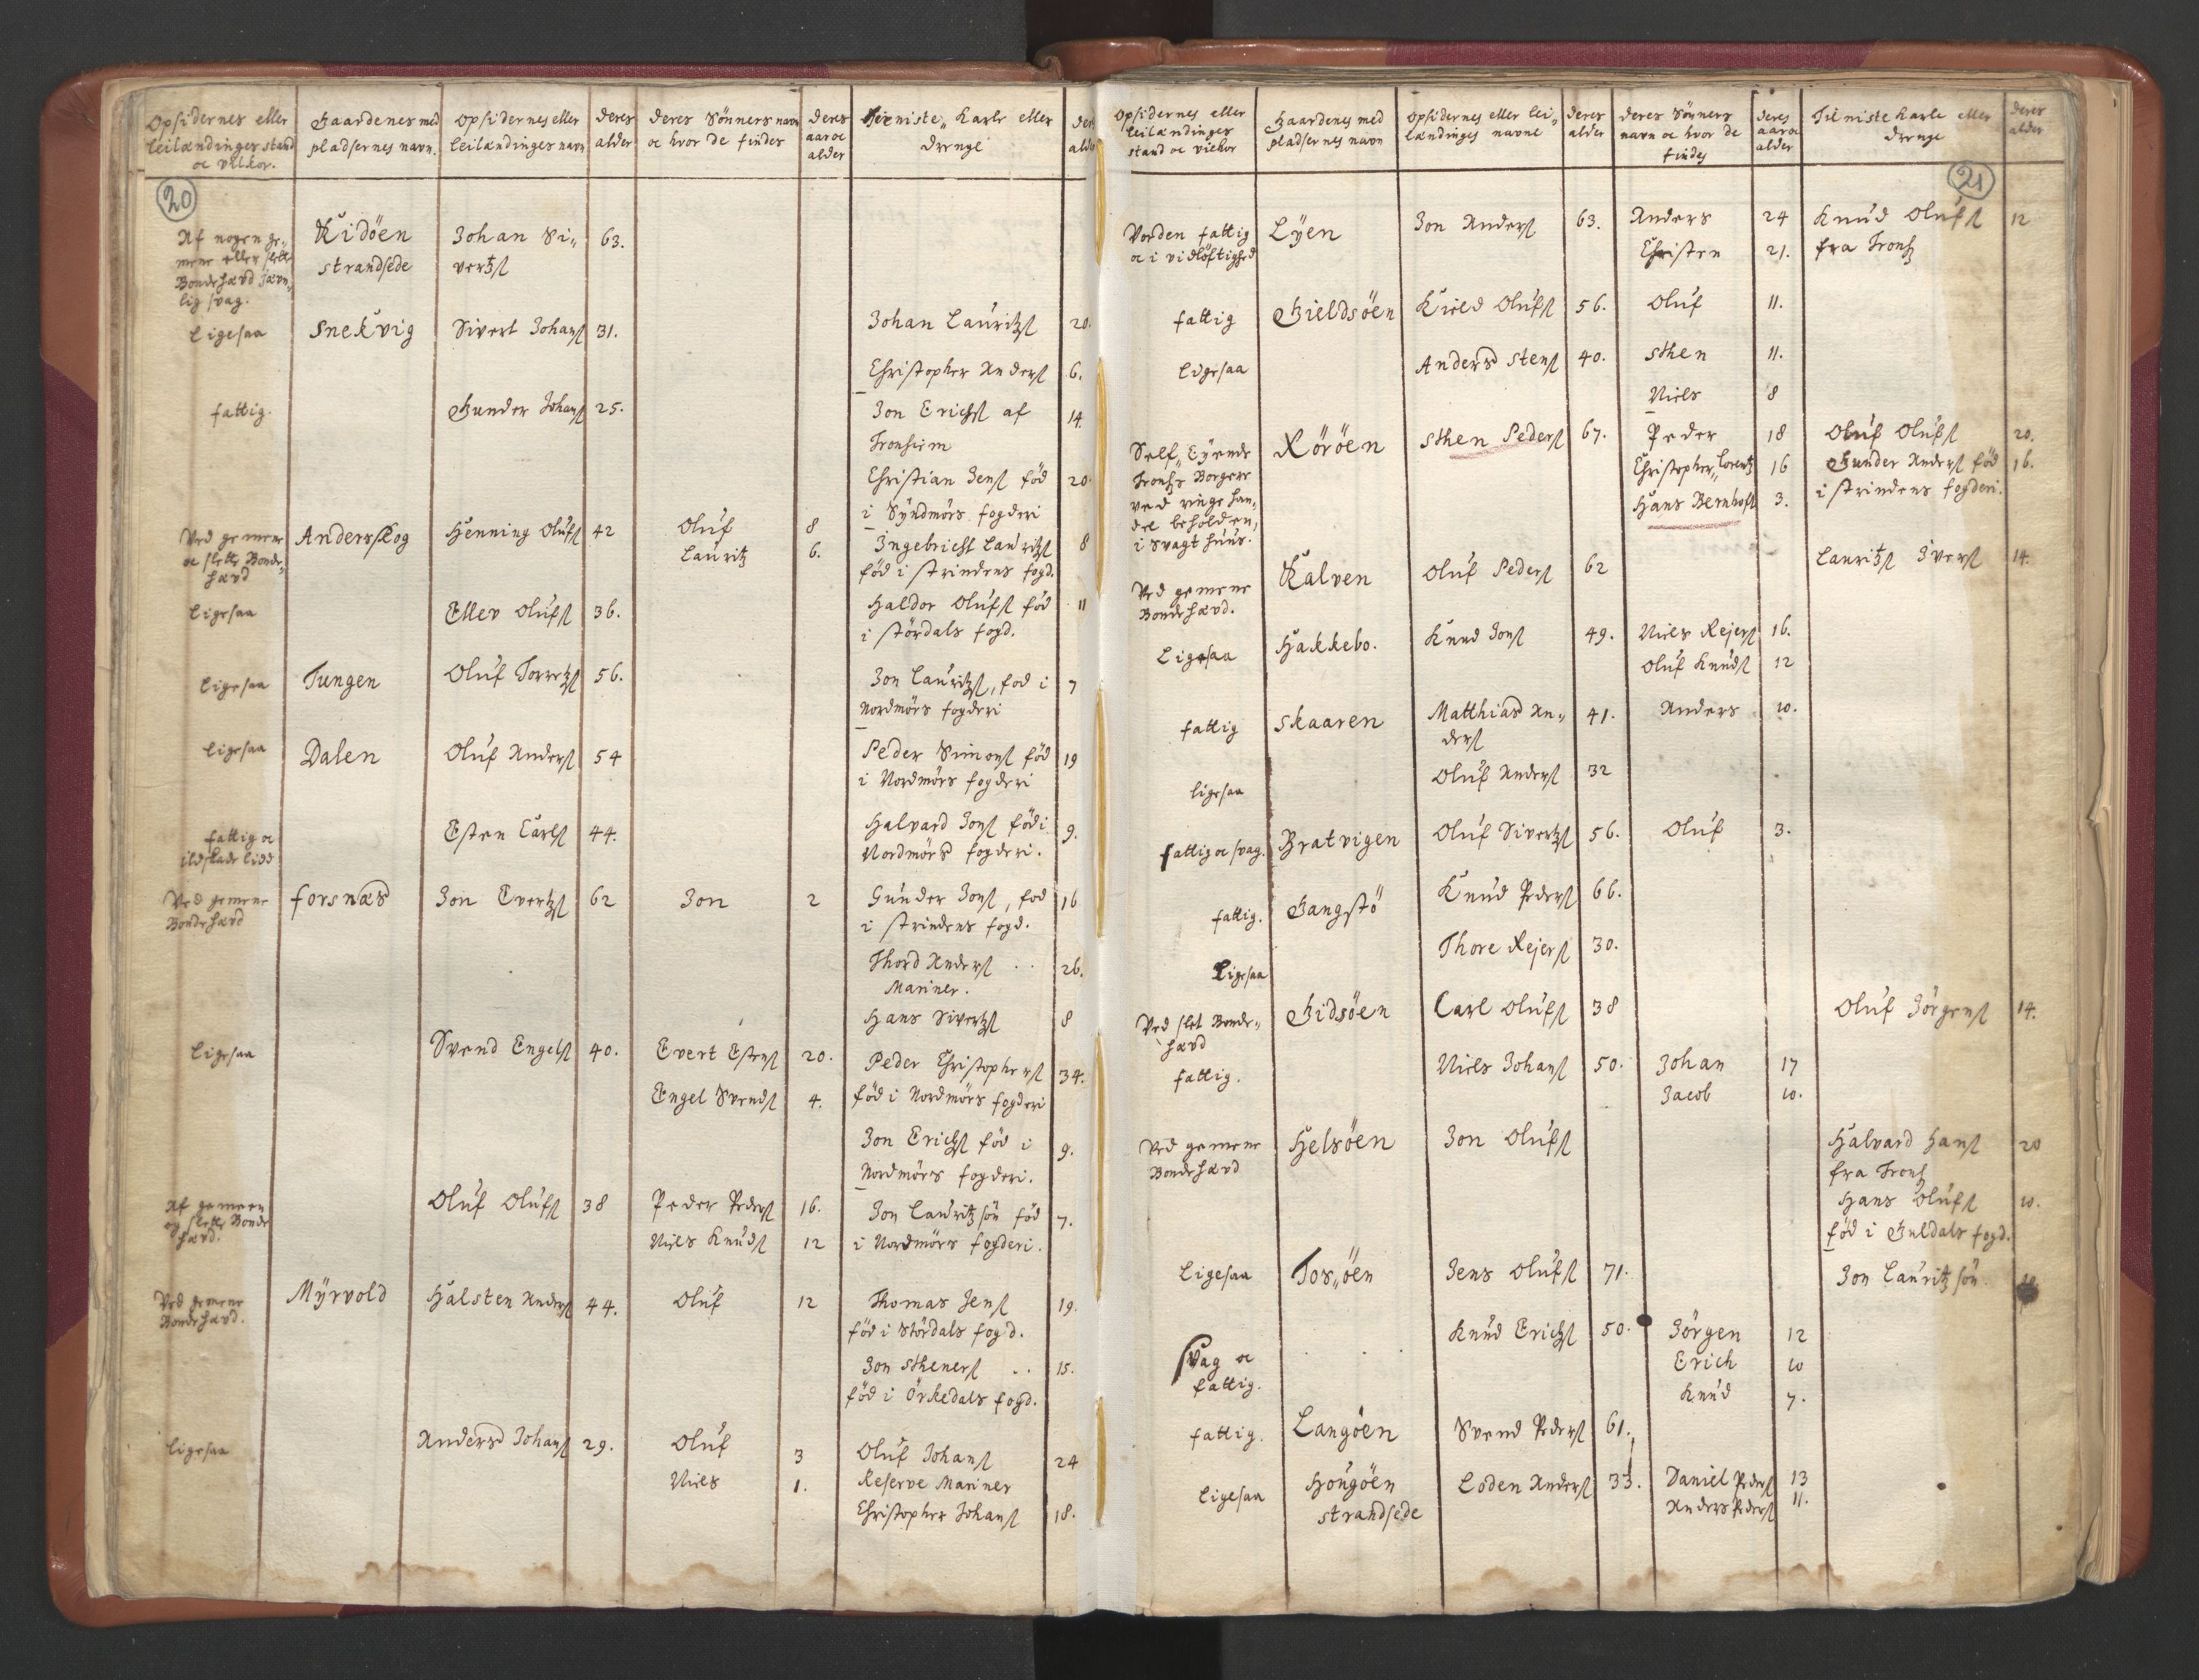 Opsidernes eller Leilændinges stand oc vilkor.
Gaardenes med pladsernes navn.
Opsidernes eller Leilændinges navn
deres alder
deres Sönners navn oc hvor de findes
deres aar oc alder
Tieniste Karle eller drenge
20
Af nogen gemene eller slette Bondehævd jævnlig svag. Kidöen strandsede Johan Sivertzſ 63.
Ligesaa Snekvig Sivert Johanſ 31. Johan Lauritzſ 20.
Christopher Anderſ 6.
fattig. Gunder Johanſ 25. Jon Erichſ af Tronhiem 14.
Christian Jenſ föd i Syndmörs fogderi 20
Ved gemene oc slette Bondehævd Anderskog Henning Olufſ 42 Oluf 8 Ingebricht Lauritzſ föd i strindens fogd. 8
Lauritz 6.
Ligesaa Ellev Olufſ 36. Haldor Olufſ föd i stördals fogd. 11
Ligesaa Tungen Oluf Torretzſ 56. Jon Lauritzſ, fod i Nordmörs fogderi 7
Ligesaa Dalen Oluf Anderſ 54 Peder Simonſ föd i Nordmörs fogderi 19
fattig oc ildskade lidd Esten Carlſ 44. Halvard Jonſ föd i Nordmörs fogderi. 9.
Ved gemene Bondehævd forsnæs Jon Evertzſ 62 Jon 2 Gunder Jonſ, fod i strindens fogd. 16
Thord Anderſ .. Mariner. 26.
Hans Sivertzſ 8
Ligesaa Svend Engelſ 40. Evert Estenſ 20. Peder Christopherſ föd i Nordmörs fogderi 34.
Engel Svendſ 4.
Jon Erichſ föd i Nordmörs fogderi. 9.
Af gemeen og slette Bonde hævd. Oluf Olufſ 38 Peder Pederſ 16. Jon Lauritzsön föd i Nordmörs fogderi. 7.
Niels Knudſ 12
Ved gemene Bondehævd. Myrvold Halsten Anderſ 44. Oluf 12 Thomas Jenſ föd i Stördals fogd. 19.
Jon Sthenerſ .. föd i Örkedals fogd. 15.
Ligesaa Anders Johanſ 29. Oluf 3 Oluf Johanſ 24
Niels 1. Reserve Mariner
Christopher Johanſ 18.
Opsidernes eller Leilændinges stand oc vilkor
Gaardenes med pladsernes navn
Opsidernes eller Leilændinges navne
deres alder
deres Sönners navn oc hvor de findes
deres aar oc alder
Tieniste Karle eller drenge
deres alder
21
Vorden fattig oc i vidlöftighed Lyen Jon Anderſ 63. Anders 24 Knud Olufſ 12
Christen 21. fra Tronh
fattig Gieldsöen Kield Olufſ 56. Oluf 11.
Ligesaa Anders Stenſ 40. Sthen 11.
Niels 8
Self Eyende Tronhs Borgere ved ringe handel beholden, i Svagt huus. Röröen Sthen Pederſ 67. Peder 18 Oluf Olufſ 20.
Christopher Lorentz 16 Gunder Anderſ föd i strindens fogderi. 16.
Hans Bernhoft 3.
Ved gemene Bondehævd. Kalven Oluf Pederſ 62 Lauritzſ Iverſ 14.
Ligesaa Hakkebo. Knud Jonſ 49. Niels Rejerſ 16.
Oluf Knudſ 12
fattig Skaaren Matthias Anderſ 41. Anders 10.
Ligesaa Oluf Anderſ 32
fattig oc svag. Bratvigen Oluf Sivertzſ 56. Oluf 3.
fattig. Gangstö Knud Pederſ 66.
Ligesaa Thore Rejerſ 30.
Ved slet Bondehævd Gidsöen Carl Olufſ 38 Oluf Jörgenſ 14.
fattig. Niels Johanſ 50. Johan 17
Jacob 10.
Ved gemene Bondehævd Helsöen Jon Olufſ Halvard Hanſ 20
fra Tronh
Hans Olufſ 10.
föd i Guldals fogd.
Ligesaa Tosöen Jens Olufſ 71. Jon Lauritzsön
Svag oc fattig. Knud Erichſ 50. Jörgen 12
Erich 10
Knud 7.
fattig. Langöen Svend Pederſ 61.
Ligesaa Hougöen strandsede Loden Anderſ 33. Daniel Pederſ 13
Anders Pederſ 11.